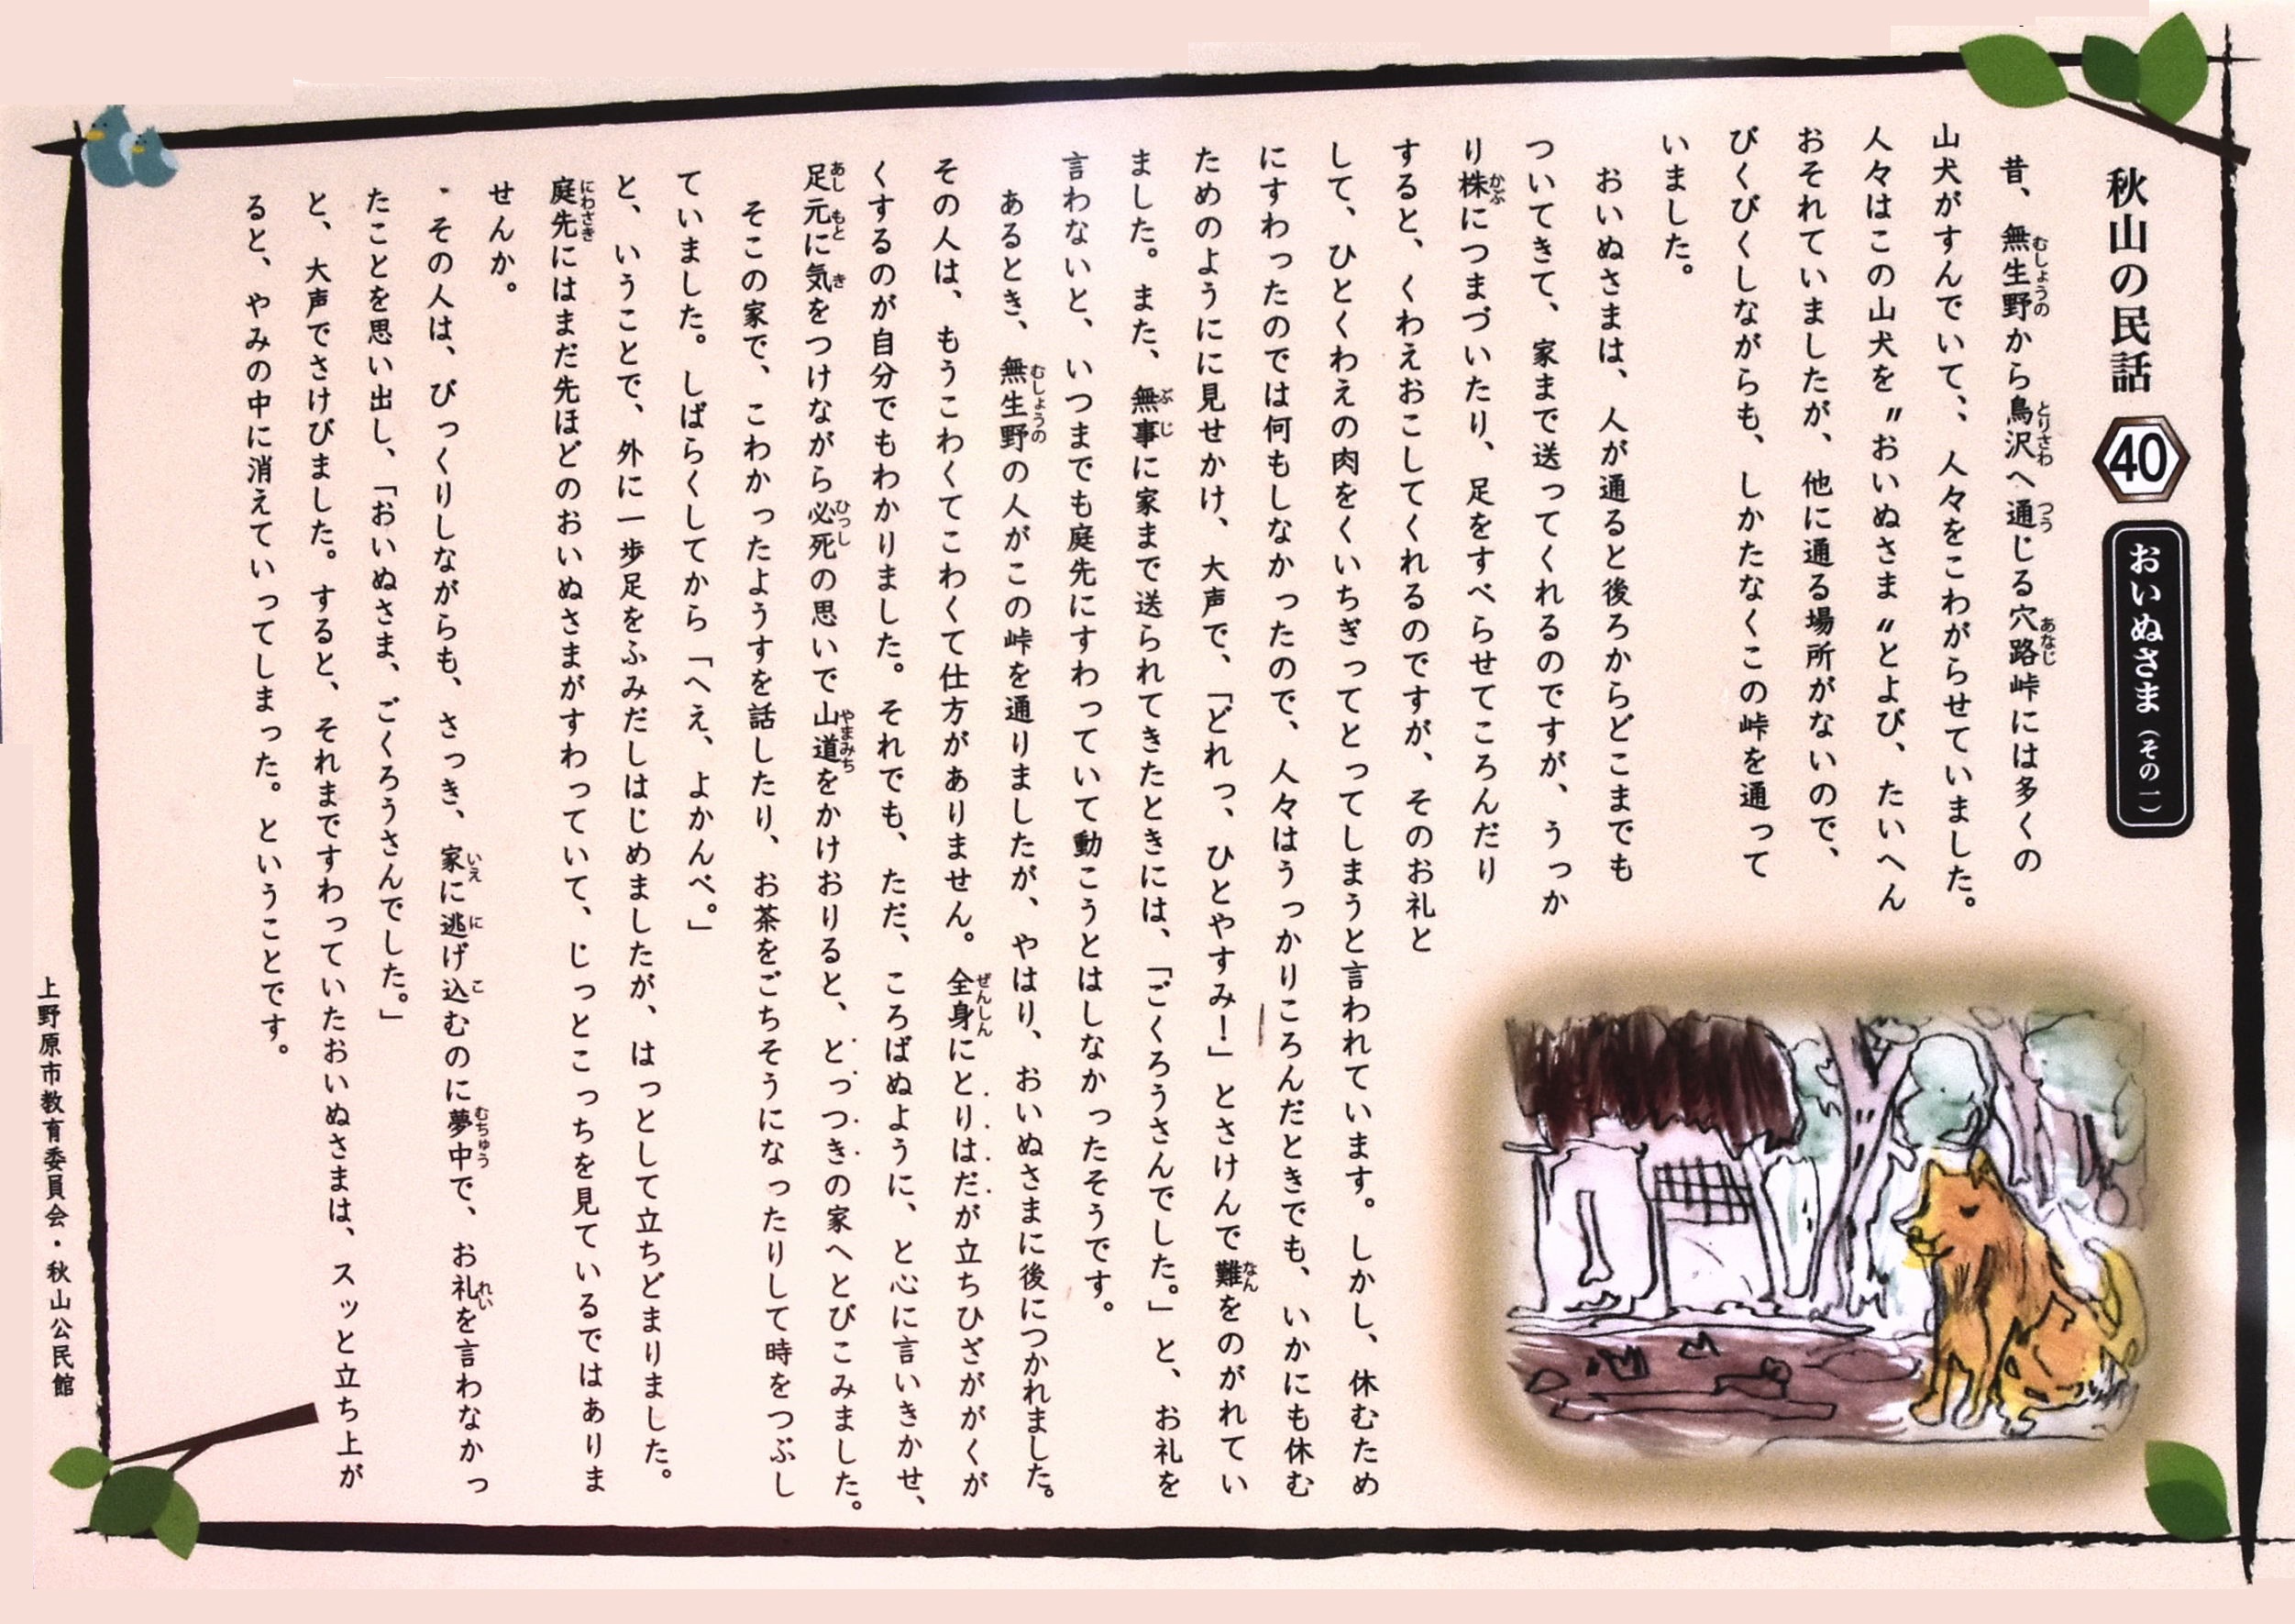 秋山の民話 40 おいぬさま（その一）
昔、無生野から鳥沢へ通じる穴路峠には多くの
山犬がすんでいて、、人々をこわがらせていました。
人々はこの山犬を〝おいぬさま〟とよび、たいへん
おそれていましたが、他に通る場所がないので、
びくびくしながらも、しかたなくこの峠を通って
いました。
おいぬさまは、人が通ると後ろからどこまでも
ついてきて、家まで送ってくれるのですが、うっか
り株につまづいたり、足をすべらせてころんだり
すると、くわえおこしてくれるのですが、そのお礼と
して、ひとくわえの肉をくいちぎってとってしまうと言われています。しかし、休むため
にすわったのでは何もしなかったので、人々はうっかりころんだときでも、いかにも休む
ためのようにに見せかけ、大声で、「どれっ、ひとやすみ！」とさけんで難をのがれてい
ました。また、無事に家まで送られてきたときには、「ごくろうさんでした。」と、お礼を
言わないと、いつまでも庭先にすわっていて動こうとはしなかったそうです。
あるとき、無生野の人がこの峠を通りましたが、やはり、おいぬさまに後につかれました。
その人は、もうこわくてこわくて仕方がありません。全身にとりはだが立ちひざががくが
くするのが自分でもわかりました。それでも、ただ、ころばぬように、と心に言いきかせ、
足元に気をつけながら必死の思いで山道をかけおりると、とっつきの家へとびこみました。
そこの家で、こわかったようすを話したり、お茶をごちそうになったりして時をつぶし
ていました。しばらくしてから「へえ、よかんべ。」
と、いうことで、外に一歩足をふみだしはじめましたが、はっとして立ちどまりました。
庭先にはまだ先ほどのおいぬさまがすわっていて、じっとこっちを見ているではありま
せんか。
・その人は、びっくりしながらも、さっき、家に逃げ込むのに夢中で、お礼を言わなかっ
たことを思い出し、「おいぬさま、ごくろうさんでした。」
と、大声でさけびました。すると、それまですわっていたおいぬさまは、スッと立ち上が
ると、やみの中に消えていってしまった。ということです。
上野原市教育委員会・秋山公民館